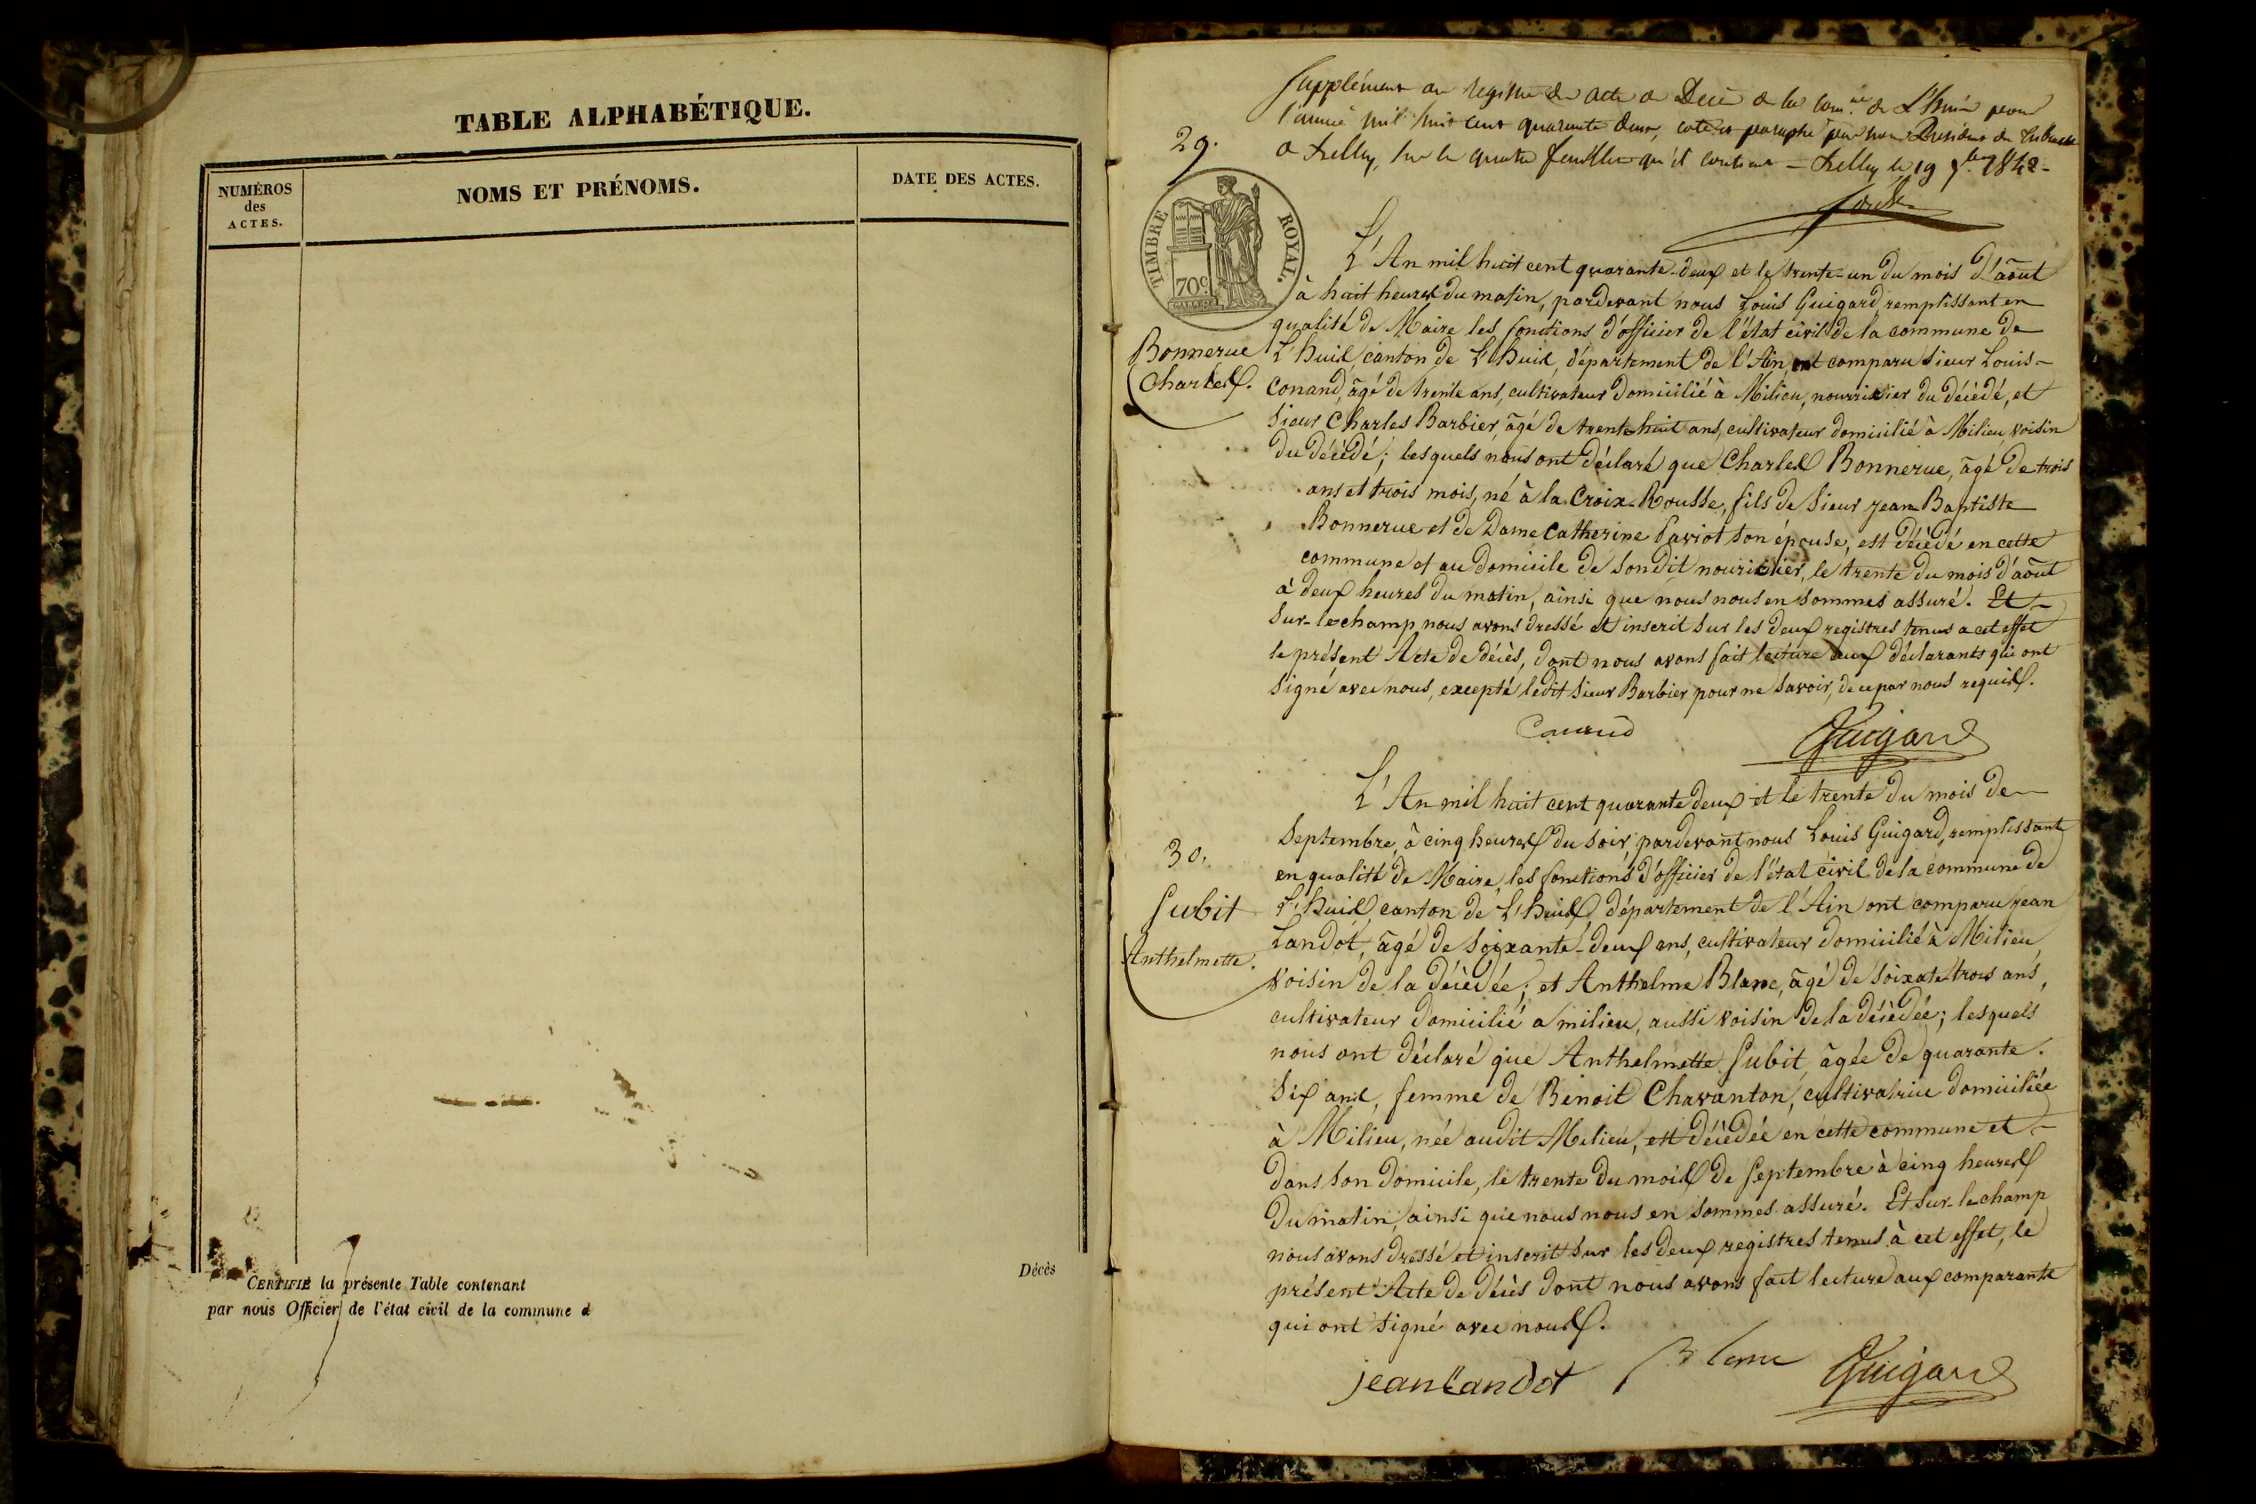 TABLE ALPHABÉTIQUE.
NUMÉROS
des
ACTES.
NOMS ET PRÉNOMS.
DATE DES ACTES.
CERTIFIÉ la présente Table contenant
Décès
par nous Officier de l'état civil de la commune d
Supplément au registre des actes de Décès de la com.ne de L'huis pour
l'année mil huit cent quarante deux, coté et paraphé par nous Président du tribunal
29.
de Belley, sur le quatre feuillets qu'il contient = Belley le 19 1842 -
TIMBRE ROYAL.
70c
L'An mil huit cent quarante-deux et le trente-un du mois d'août
à huit heures du matin, pardevant nous Louis Guigard, remplissant en
qualité de Maire les fonctions d'officier de l'état civil de la commune de
Bonnerue
L'huis, canton de L'huis, département de l'Ain, ont comparu sieur Louis-
Charles.
Conand, âgé de trente ans, cultivateur domicilié à Milieu, nourricier du décédé, et
Sieur Charles Barbier, âgé de trente huit ans, cultivateur domicilié à Milieu, voisin
du décédé; lesquels nous ont déclaré que Charles Bonnerue, âgé de trois
ans et trois mois, né à la Croix-Rousse, fils de Sieur Jean Baptiste
Bonnerue et de Dame Catherine Pariot son épouse, est décédé en cette
commune et au domicile de son dit nouricier, le trente du mois d'août
à deux heures du matin, ainsi que nous nous en sommes assuré. Et -
Sur-le champ nous avons dressé et inscrit sur les deux registres tenus a cet effet
le présent Acte de décès, dont nous avons fait lecture aux déclarants qui ont
signé avec nous, excepté ledit sieur Barbier pour ne savoir, de ce par nous requis.
Conand Guigard
L'An mil huit cent quarante deux et le trente du mois de
Septembre, à cinq heures du soir, pardevant nous Louis Guigard, remplissant
30.
en qualité de Maire, les fonctions d'officier de l'état civil de la commune de
Subit
L'huis, canton de L'huis, département de l'Ain ont comparu Jean
Anthelmette.
Landot, âgé de soixante-deux ans, cultivateur domicilié à Milieu,
voisin de la décédée; et Anthelme Blanc, âgé de soixate trois ans,
cultivateur domicilié a milieu, aussi voisin de la décédée; lesquels
nous ont déclaré que Anthelmette Subit, âgée de quarante-
Six ans, femme de Benoit Chavanton, cultivatrice domiciliée
à Milieu, née audit Milieu, est décédée en cette commune et
dans son domicile, le trente du mois de Septembre à cinq heures
du matin, ainsi que nous nous en sommes assuré. Et sur-le champ
nous avons dressé et inscrit sur les deux registres tenus à cet effet, le
présent Acte de décès dont nous avons fait lecture aux comparants
qui ont signé avec nous.
jean Landot Blanc Guigard